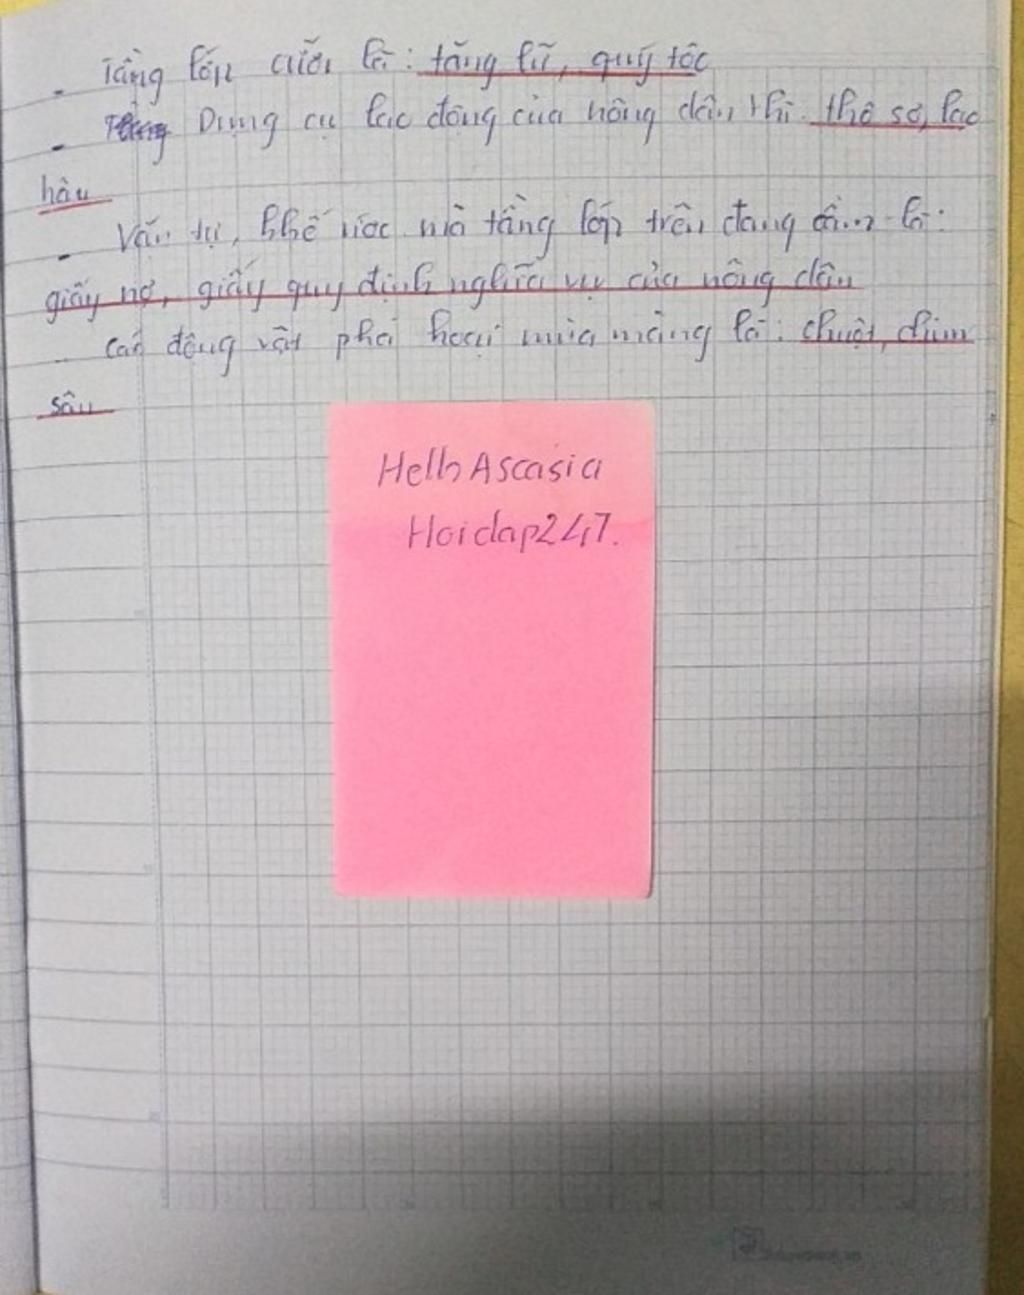 - Tầng lớp cưỡi là: tăng lữ, quý tộc
- Dụng cụ lao động của nông dân thì thô sơ, lạc
hậu
- Văn tự, khế ước mà tầng lớp trên đang cầm là:
giấy nợ, giấy quy định nghĩa vụ của nông dân
- Các động vật phá hoại mùa màng là: chuột, chim
sâu
Hello Ascasia
Hoidap247.